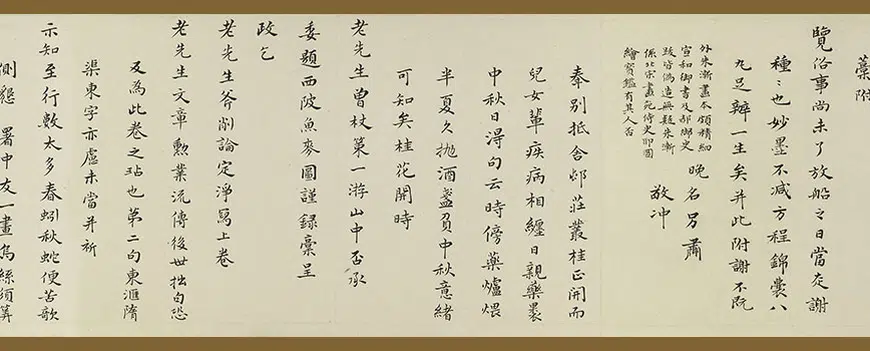 藁附
覽俗事尚未了放船之日當走謝
種〻也妙墨不减方程錦囊八
九足辦一生矣并此附謝不既
晚名另肅
敬冲
外朱漸畫本頗精細
宣和御書及鄧鄉史
跋皆偽造無疑朱漸
係北宋畫苑待史耶圖
繪寶鑑有其人否
奉別抵舍邨莊叢桂正開而
兒女輩疾病相纏日親藥裹
中秋日得句云時傍藥爐煨
半夏久抛酒盞負中秋意緒
可知矣桂花開時
老先生曾杖第一游山中否承
委題西陂魚麥圖謹録藁呈
政乞
老先生斧削論定淨寫上卷
老先生文章勲業流傳後世拙句恐
及為此卷之玷也第二句東滙隋
渠東字亦虛未當并祈
示知至行數太多春蚓秋蛇便苦歌
側懇 署中友一畫烏絲須算